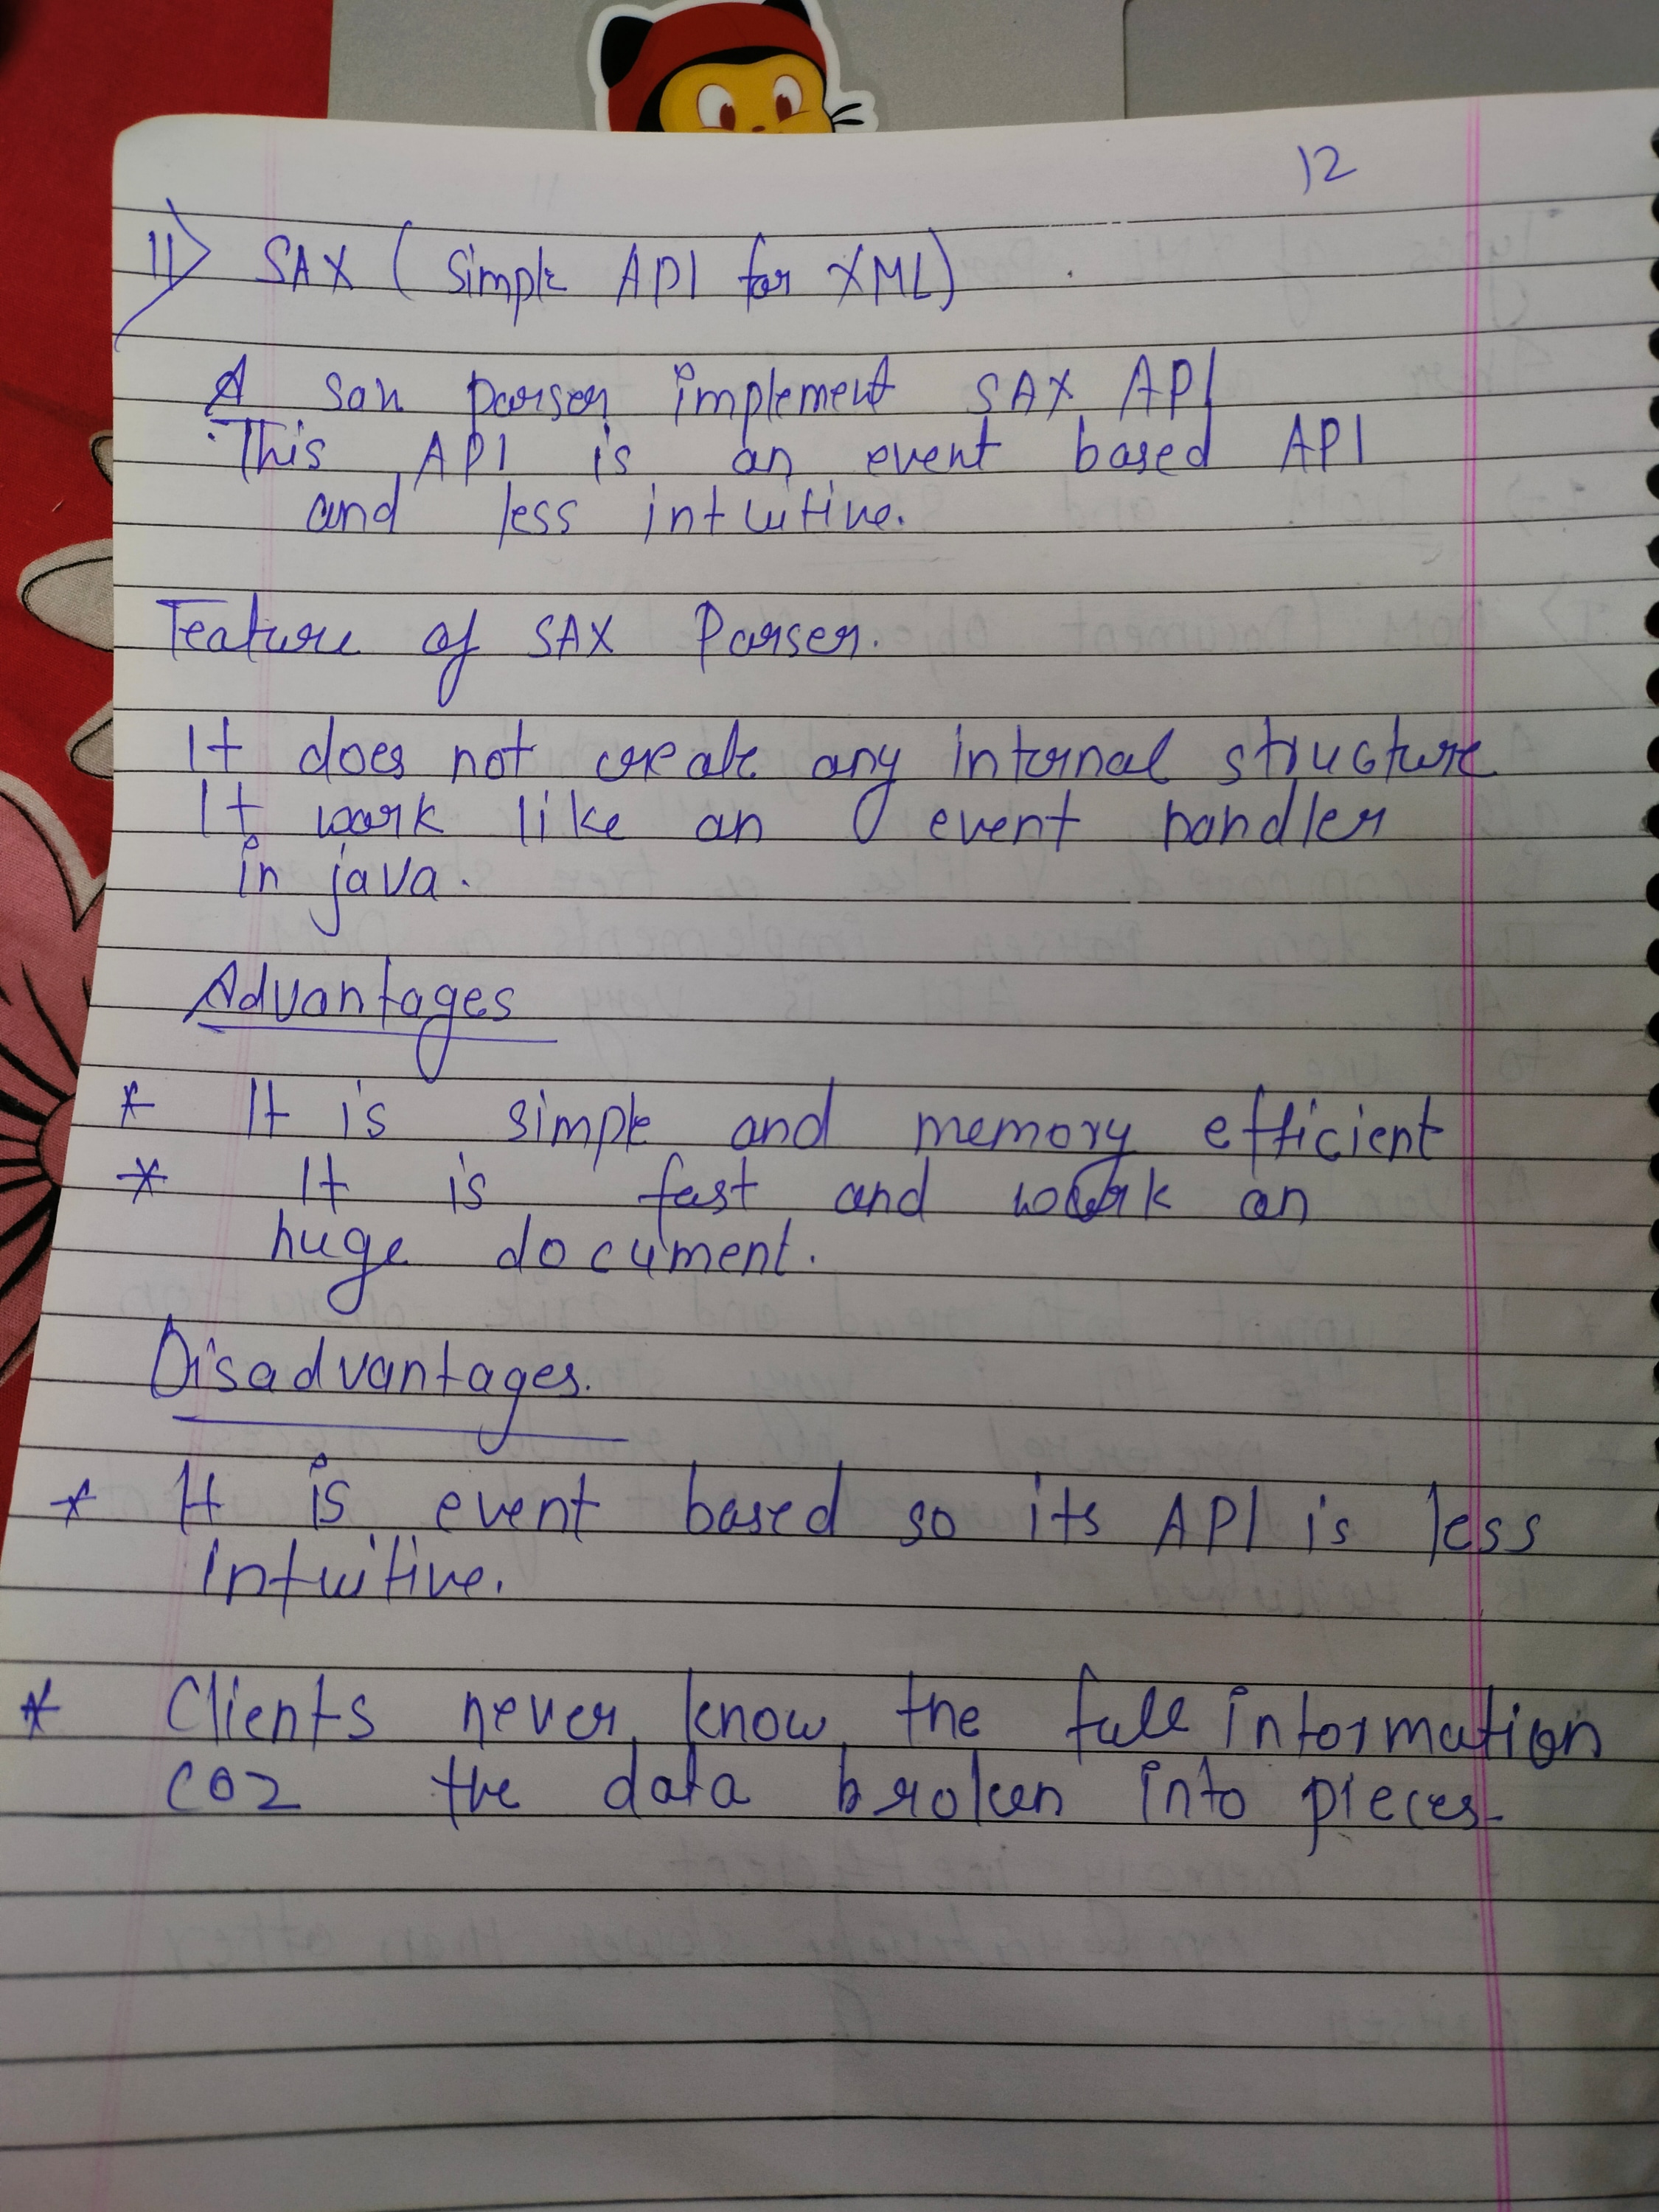 12
11> SAX ( Simple API for XML)
A sax parser implement SAX API
This API is an event based API
and less intuitive.
Feature of SAX Parser.
It does not create any internal structure
It work like an event handler
in java.
Advantages
* It is simple and memory efficient
* It is fast and work on
huge document.
Disadvantages.
* It is event based so its API is less
intuitive.
* Clients never know the full information
coz the data broken into pieces.